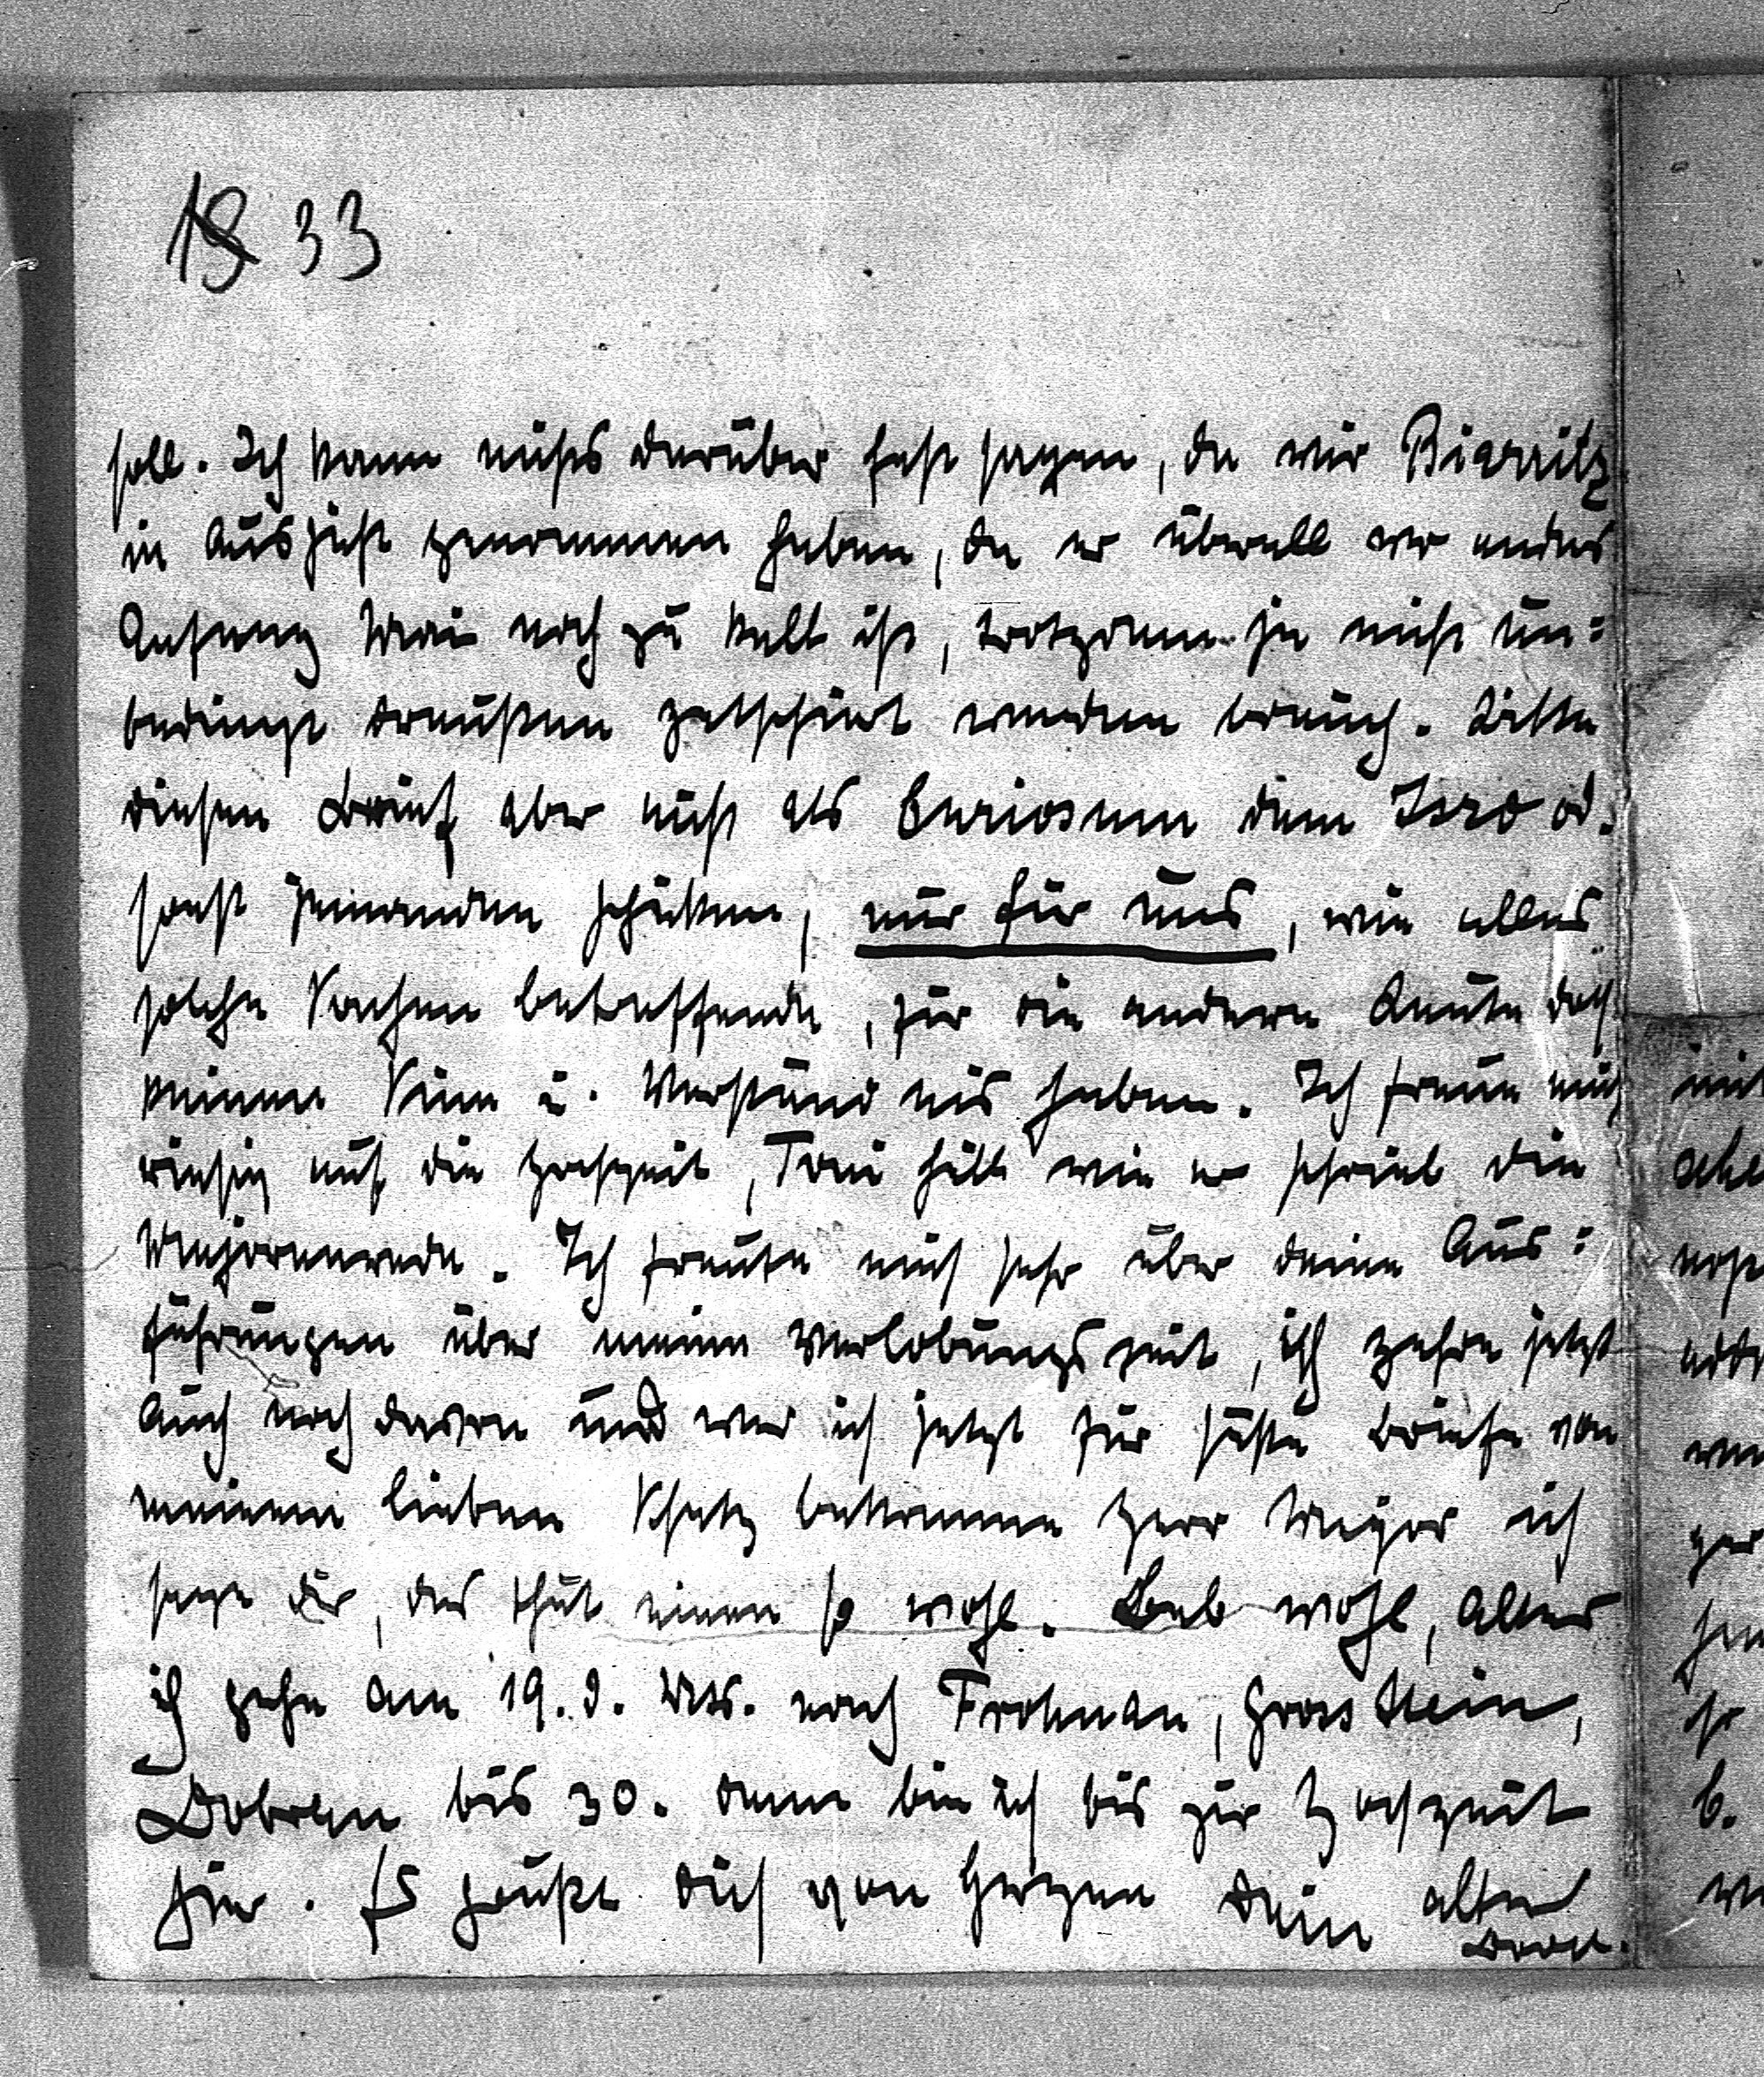 18 33
soll. Ich kann nichts darüber fest sagen, da wir Biarritz
in Aussicht genommen haben, da es überall wo anders
Anfang Mai noch zu kalt ist, trotzdem ja nicht un=
bedingt draußen gebadet werden brauch. Bitte
diesen Brief aber nicht als Curiosum dem Isro od.
sonst jemanden schicken, nur für uns, wie alles
solche Sachen betreffende, für die andere Leute doch
keinen Sinn u. Verständnis haben. Ich freue mich
riesig auf die Hochzeit, Toni hält wie er schrieb die
Majorenrede. Ich freute mich sehr über deine Aus=
führungen über meine Verlobungszeit, ich zehre jetzt
auch noch davon und was ich jetzt für süße Briefe von
meinem lieben Schatz bekomme Herr Major ich
sage dir, das thut einen so wohl. Leb wohl, Alter
ich gehe am 19. d. Mts. nach Frohnau, Gross Stein,
Dobrau bis 30. dann bin ich bis zur Hochzeit
hier. Es grüßt dich von Herzen dein alter